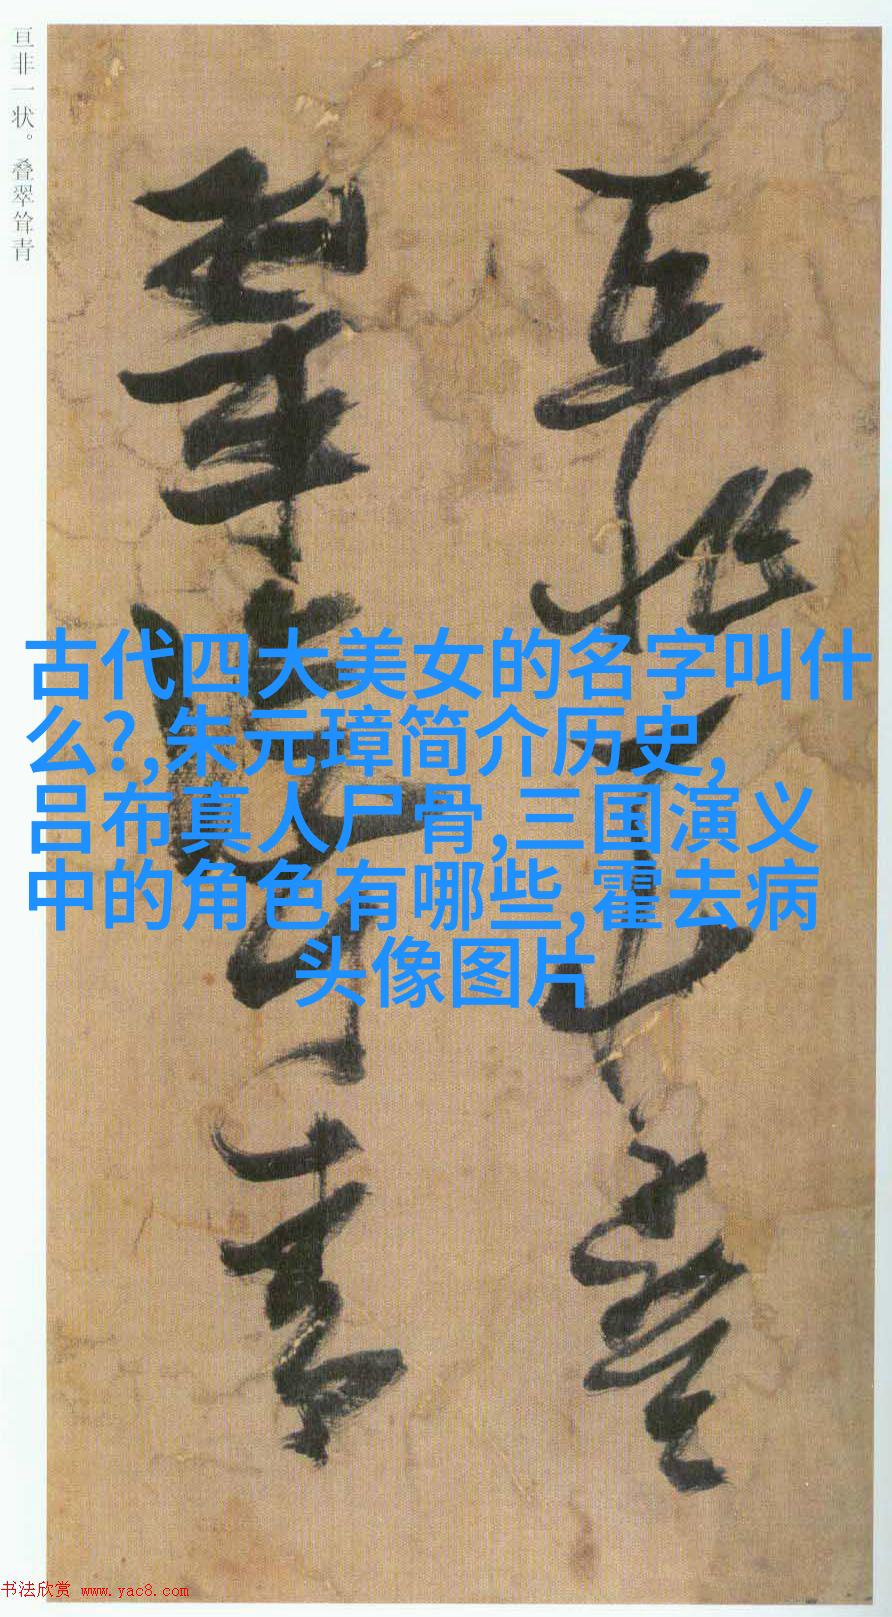 亘非一状。叠翠耸青
亘非一状叠
翠耸青
古代四大美女的名字叫什
么?,朱元璋简介历史,
吕布真人尸骨,三国演义
中的角色有哪些,霍去病
头像图片
书法欣赏 www.yac8.com